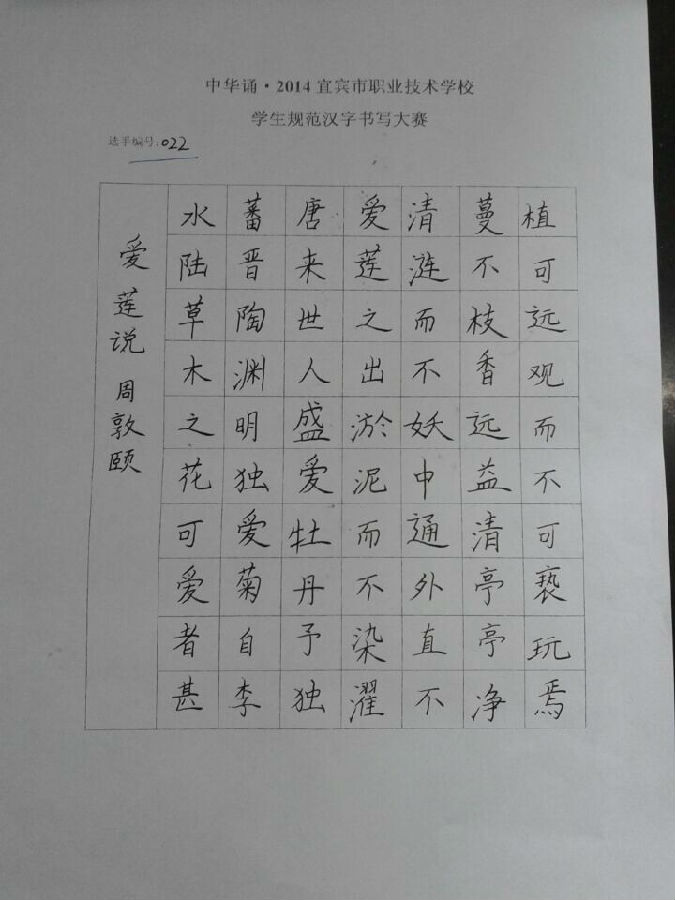 中华诵·2014宜宾市职业技术学校
学生规范汉字书写大赛
选手编号:022
爱莲说 周敦颐
水陆草木之花可爱者甚
蕃晋陶渊明独爱菊自李
唐来世人盛爱牡丹予独
爱莲之出淤泥而不染濯
清涟而不妖中通外直不
蔓不枝香远益清亭亭净
植可远观而不可亵玩焉